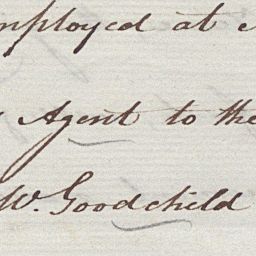 employed at
Agent to the
W. Goodchild